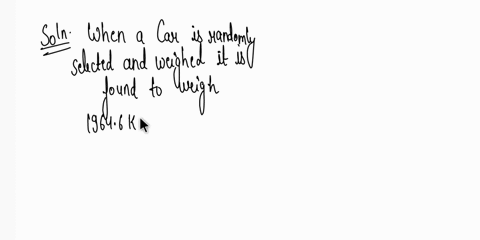 Soln. When a Car is randomly
selected and weighed it is
found to weigh
1964.6 K